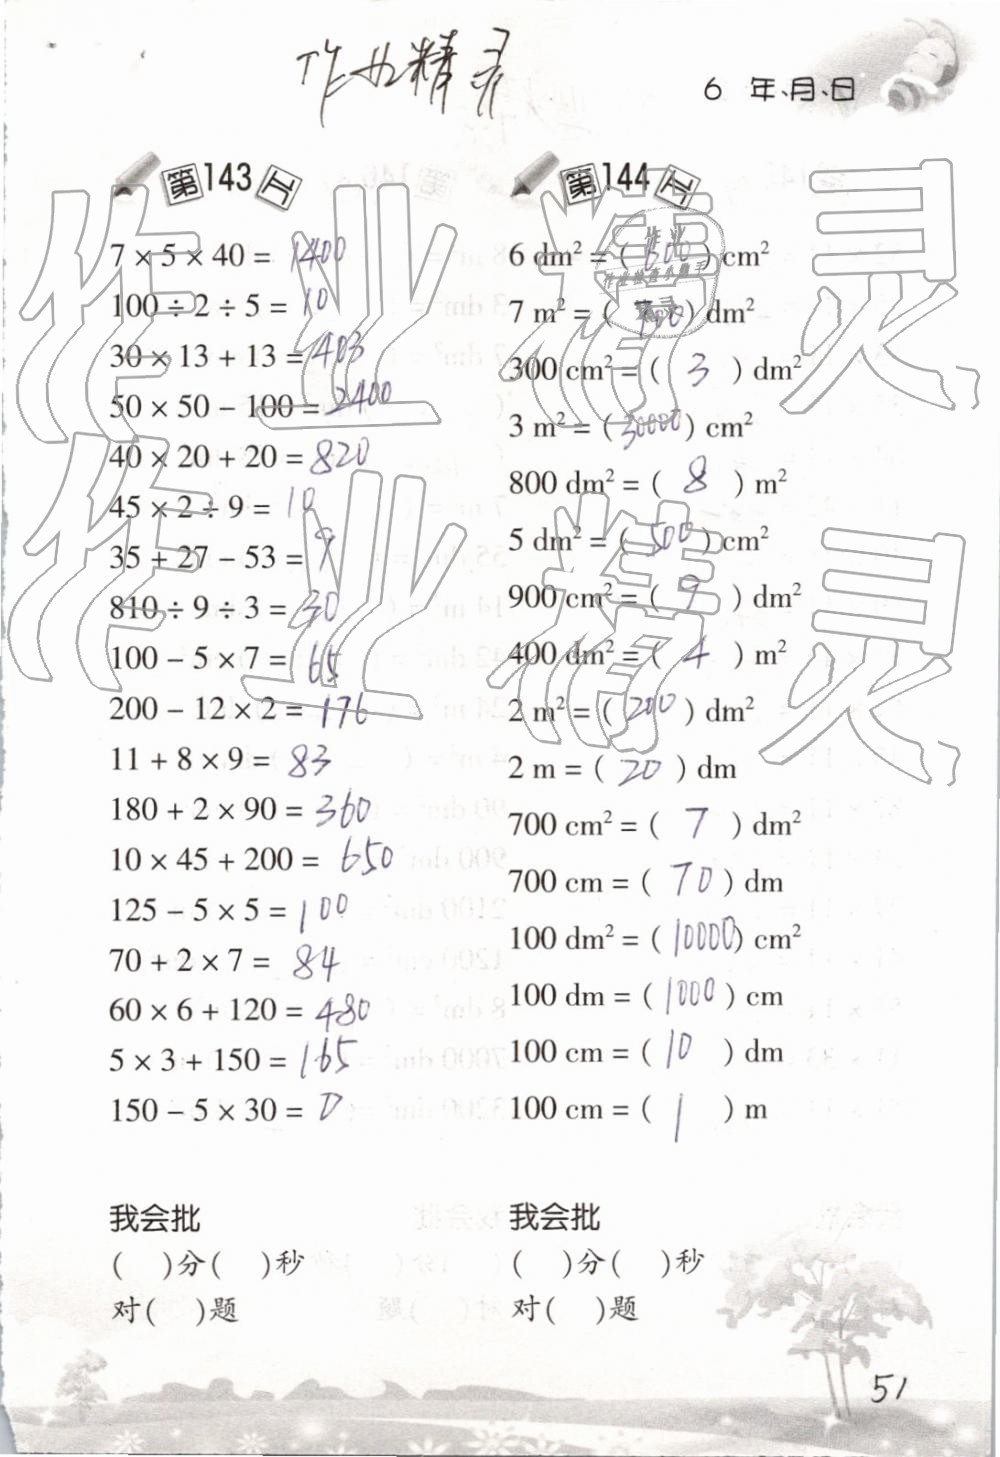 作业精灵
6 年、月、日
第143天
7 × 5 × 40 = 1400
100 ÷ 2 ÷ 5 = 10
30 × 13 + 13 = 403
50 × 50 − 100 = 2400
40 × 20 + 20 = 820
45 × 2 ÷ 9 = 10
35 + 27 − 53 = 9
810 ÷ 9 ÷ 3 = 30
100 − 5 × 7 = 65
200 − 12 × 2 = 176
11 + 8 × 9 = 83
180 + 2 × 90 = 360
10 × 45 + 200 = 650
125 − 5 × 5 = 100
70 + 2 × 7 = 84
60 × 6 + 120 = 480
5 × 3 + 150 = 165
150 − 5 × 30 = 0
我会批
(    )分(    )秒
对(    )题
第144天
6 dm² = ( 600 ) cm²
7 m² = ( 700 ) dm²
300 cm² = ( 3 ) dm²
3 m² = ( 30000 ) cm²
800 dm² = ( 8 ) m²
5 dm² = ( 500 ) cm²
900 cm² = ( 9 ) dm²
400 dm² = ( 4 ) m²
2 m² = ( 200 ) dm²
2 m = ( 20 ) dm
700 cm² = ( 7 ) dm²
700 cm = ( 70 ) dm
100 dm² = ( 10000 ) cm²
100 dm = ( 1000 ) cm
100 cm = ( 10 ) dm
100 cm = ( 1 ) m
我会批
(    )分(    )秒
对(    )题
51
作业精灵
作业精灵